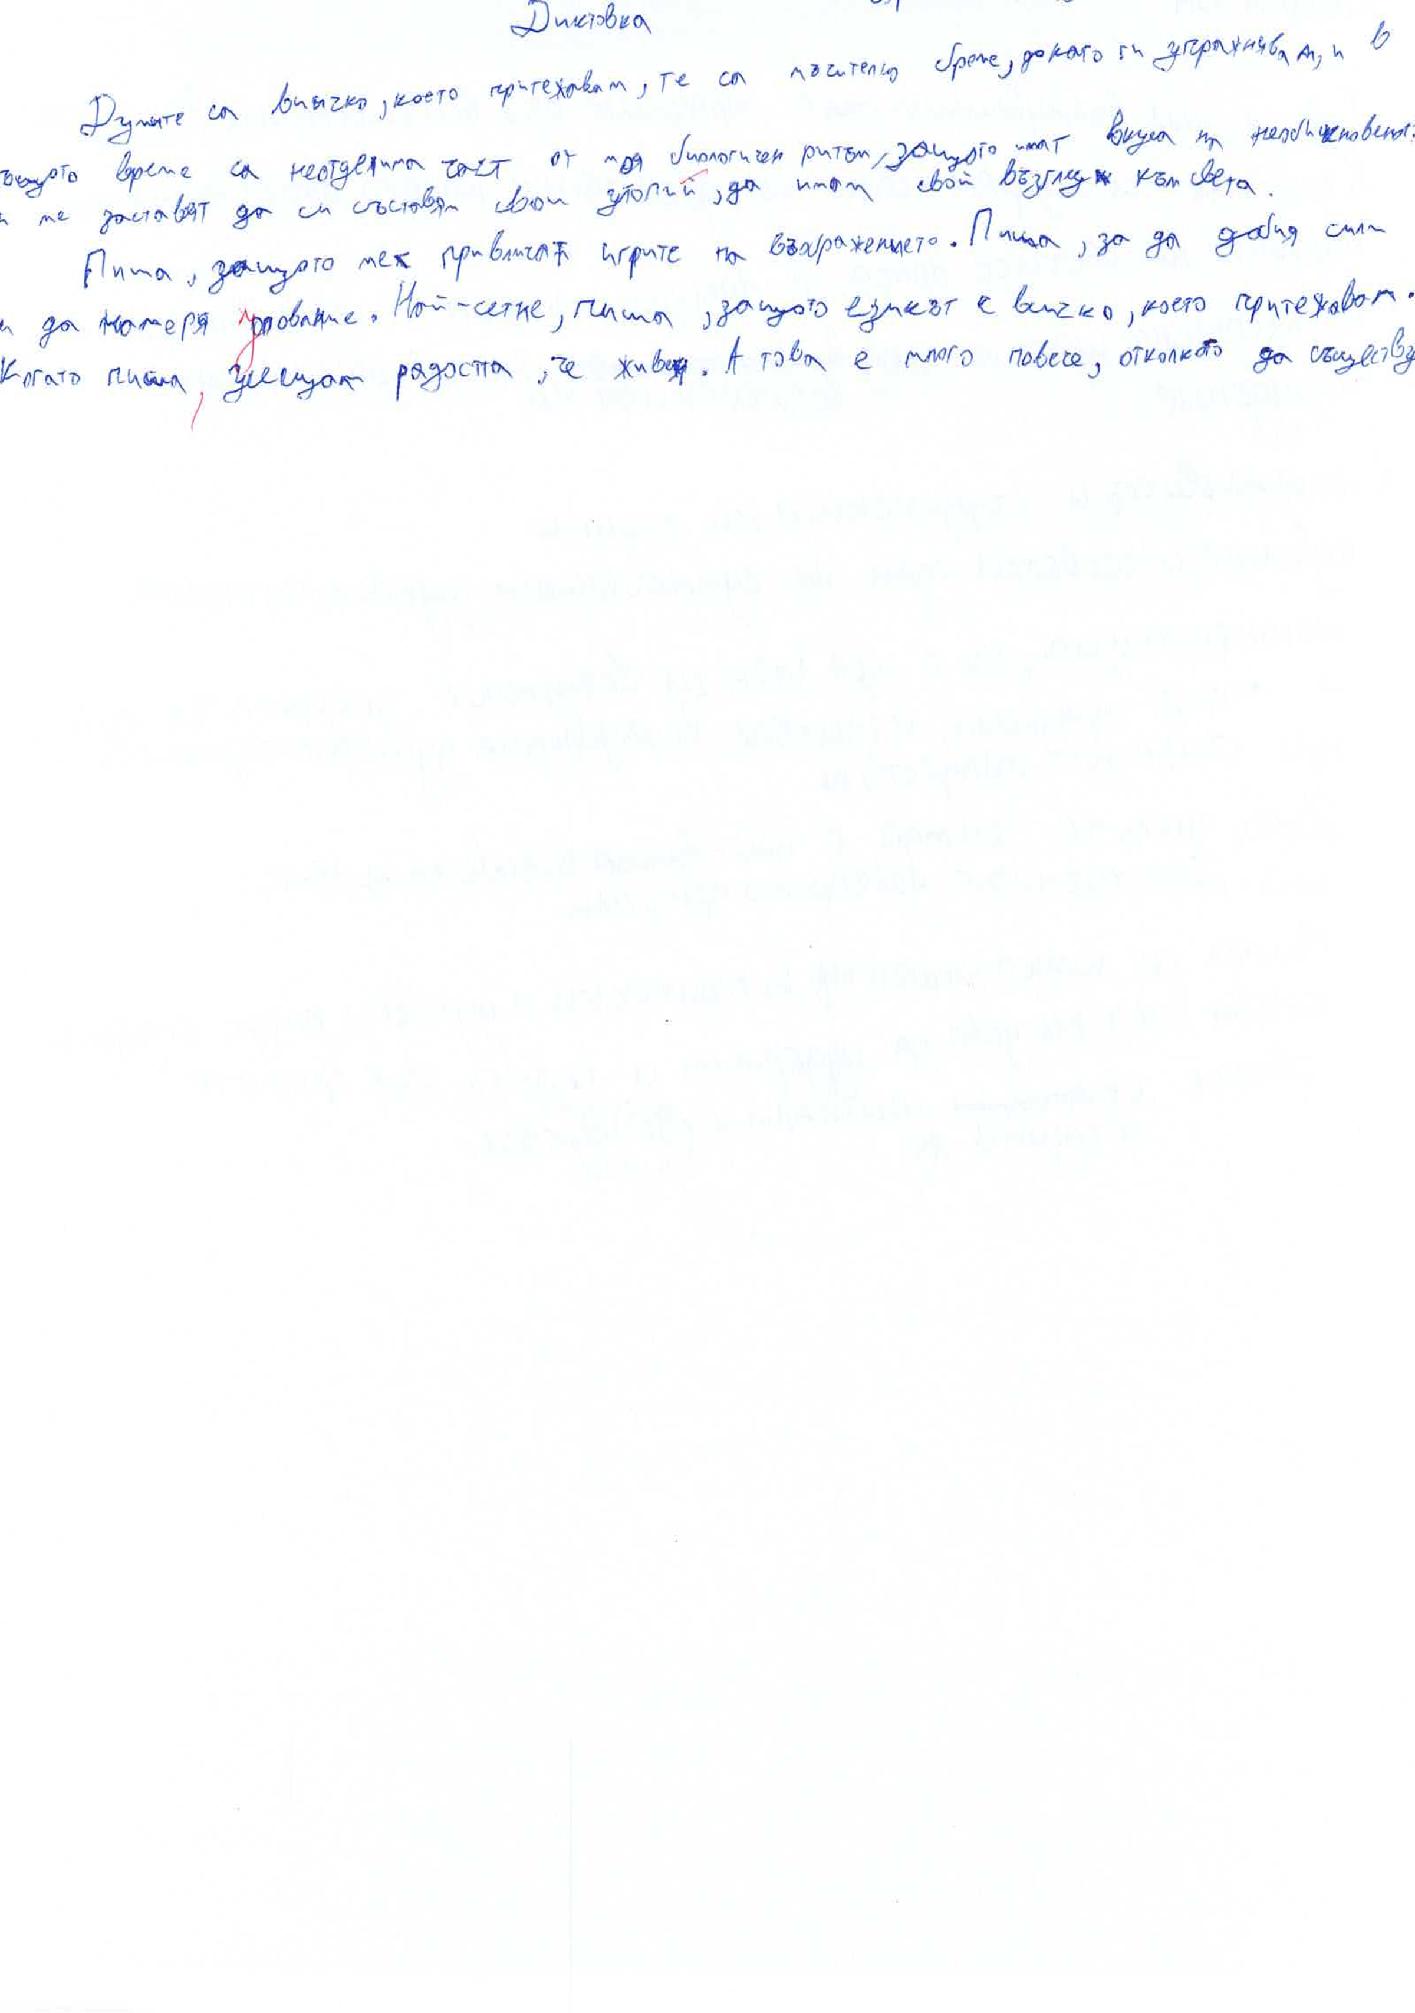 Диктовка
Думите са всичко, което притежавам, те са мъчително бреме, докато ги упражнявам, и в
същото време са неотделима част от моя биологичен ритъм, защото имат вкуса на необикновеност
и ме заставят да си съставям свои утопии, да имам свой възглед към света.
Пиша, защото мек привличат игрите на въображението. Пиша, за да добия сили
и да намеря упование. Най-сетне, пиша, защото езикът е всичко, което притежавам.
Когато пиша, усещам радостта, че живея. А това е много повече, отколкото да съществу